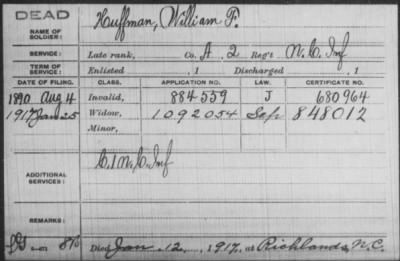 DEAD
NAME OF SOLDIER: Huffman, William P.
SERVICE: Late rank, Co. A, 2 Reg't N.C. Inf
TERM OF SERVICE: Enlisted , 1 Discharged , 1
DATE OF FILING. CLASS. APPLICATION NO. LAW. CERTIFICATE NO.
1890 Aug 4 Invalid, 884559 J 680964
1917 Jan 25 Widow, 1092054 Sep 848012
Minor,
C. 1 N.C. Inf
ADDITIONAL SERVICES:
REMARKS:
Died Jan. 12, 1917, at Richlands, N.C.